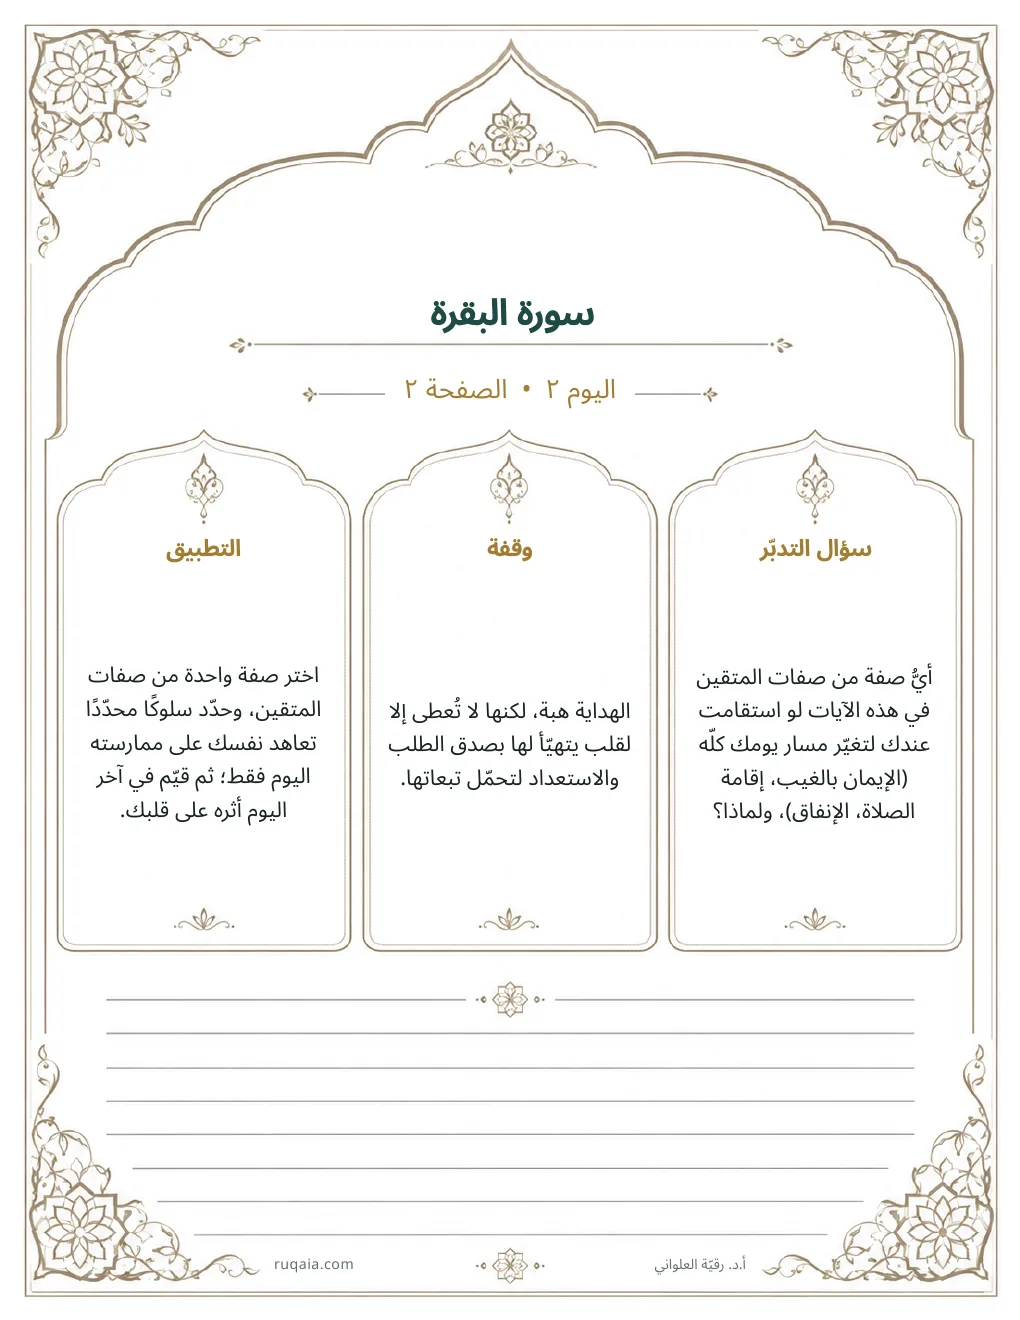 سورة البقرة
اليوم ٢ • الصفحة ٢
سؤال التدبّر
أيُّ صفة من صفات المتقين
في هذه الآيات لو استقامت
عندك لتغيّر مسار يومك كلّه
(الإيمان بالغيب، إقامة
الصلاة، الإنفاق)، ولماذا؟
وقفة
الهداية هبة، لكنها لا تُعطى إلا
لقلب يتهيّأ لها بصدق الطلب
والاستعداد لتحمّل تبعاتها.
التطبيق
اختر صفة واحدة من صفات
المتقين، وحدّد سلوكًا محددًا
تعاهد نفسك على ممارسته
اليوم فقط؛ ثم قيّم في آخر
اليوم أثره على قلبك.
أ.د. رقيّة العلواني
ruqaia.com